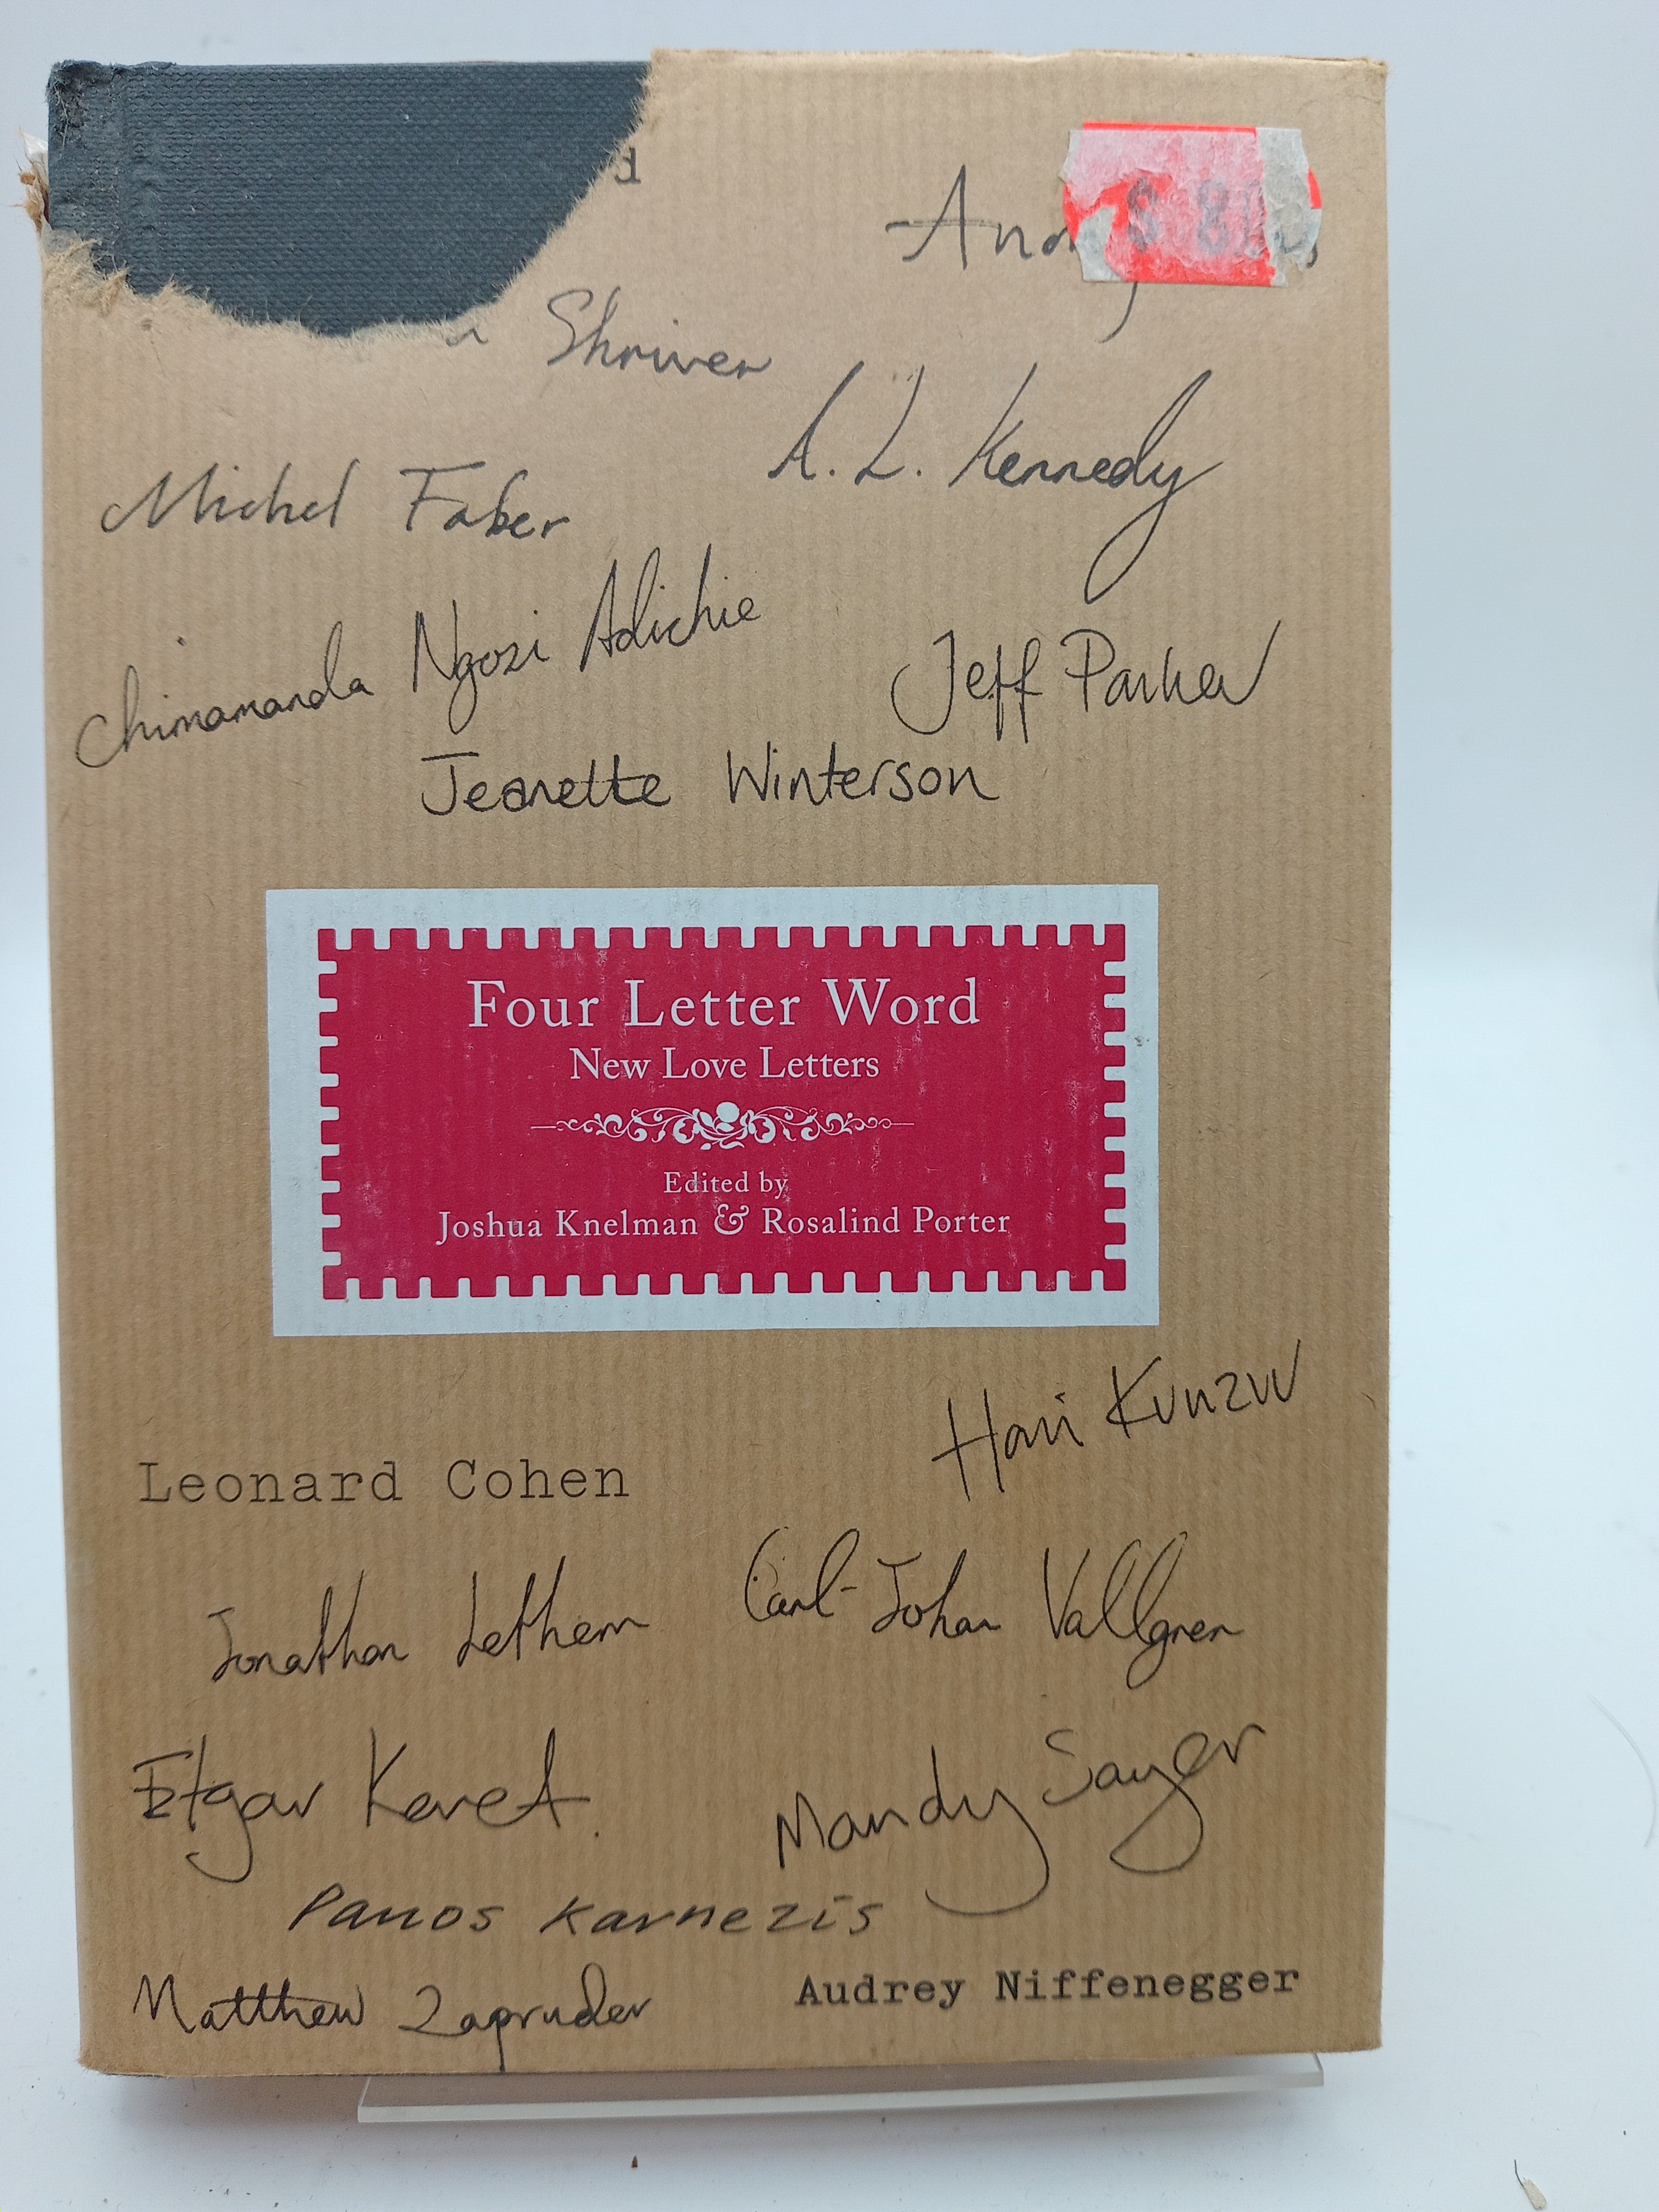 d
Shriver
A. L. Kennedy
Michel Faber
Chimamanda Ngozi Adichie
Jeff Parker
Jeanette Winterson
Four Letter Word
New Love Letters
Edited by
Joshua Knelman & Rosalind Porter
Hari Kunzru
Leonard Cohen
Jonathan Lethem
Carl-Johan Vallgren
Etgar Keret
Mandy Sayer
Panos Karnezis
Matthew Zapruder
Audrey Niffenegger